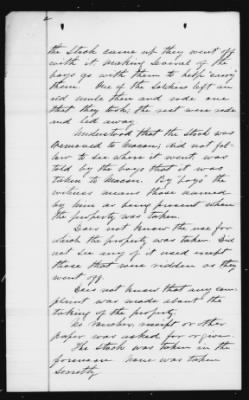 2
the Stock came up they went off
with it making several of the
boys go with them to help drive
them. One of the soldiers left an
old mule there and rode one
that they took, the rest were rode
and led away.
Understood that the Stock was
removed to Macon; did not fol-
low to see where it went. was
told by the boys that it was
taken to Macon. By "boys" the
witness means those named
by him as being present when
the property was taken.
Does not know the use for
which the property was taken. Did
not see any of it used except
those that were ridden as they
went off.
Does not know that any com-
plaint was made about the
taking of the property.
No voucher, receipt or other
paper was asked for or given.
The Stock was taken in the
forenoon none was taken
secretly